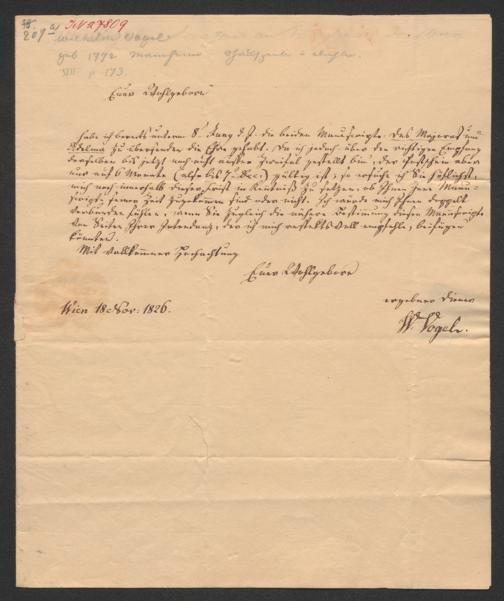 207 a) IN 27809
Wilhelm Vogel
geb 1772 Mannheim Schauspieler u. Dichter.
XIII p. 173.
Euer Wohlgeboren
habe ich bereits unterm 8t Juny d. J. die beiden Manuscripte: Das Majorat und
Adelma zu übersenden die Ehre gehabt. Da ich jedoch über den richtigen Empfang
derselben bis jetzt noch nicht ausser Zweifel gestellt bin, der Postschein aber
nur auf 6 Monate (also bis 7 Dec.) gültig ist, so ersuche ich Sie höflichst,
mich noch innerhalb dieser Frist in Kenntniß zu setzen, ob Ihnen jene Manu-
scripte seiner Zeit zugekommen sind oder nicht. Ich werde mich Ihnen doppelt
verbunden fühlen, wenn Sie zugleich die nähere Bestimmung dieser Manuscripte
von Seiten Ihrer Intendanz, der ich mich respektsvoll empfehle, beifügen
könnten.
Mit vollkommner Hochachtung
Euer Wohlgeboren
Wien 18 Nov: 1826.
ergebner Diener
W. Vogel.